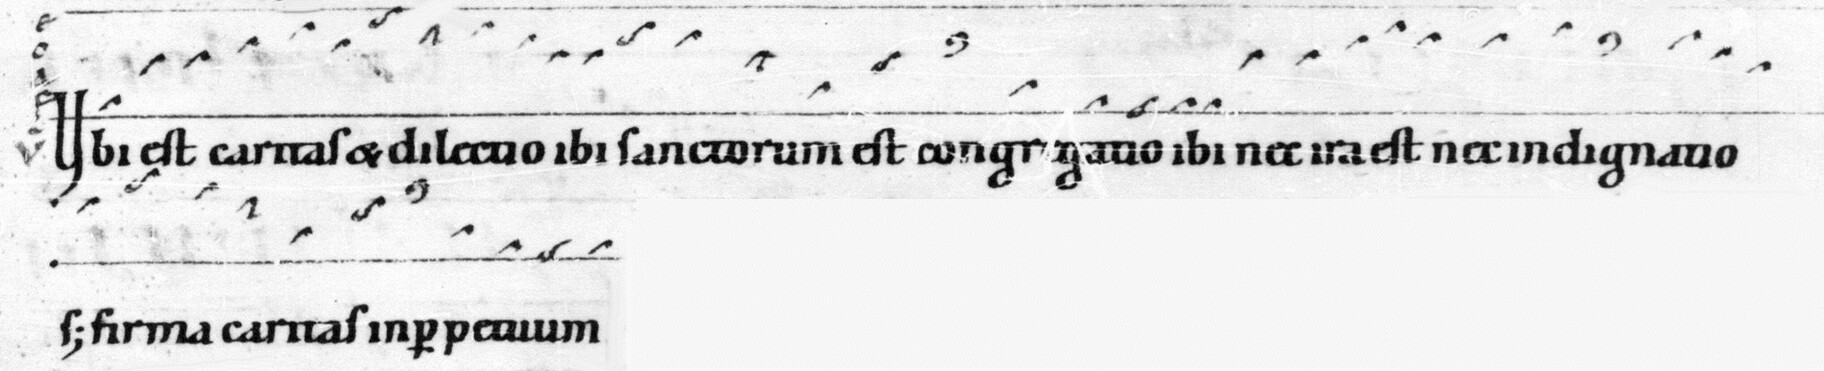 Ybi est caritas & dilectio ibi sanctorum est congregatio ibi nec ira est nec indignatio
s; firma caritas inp̱petuum